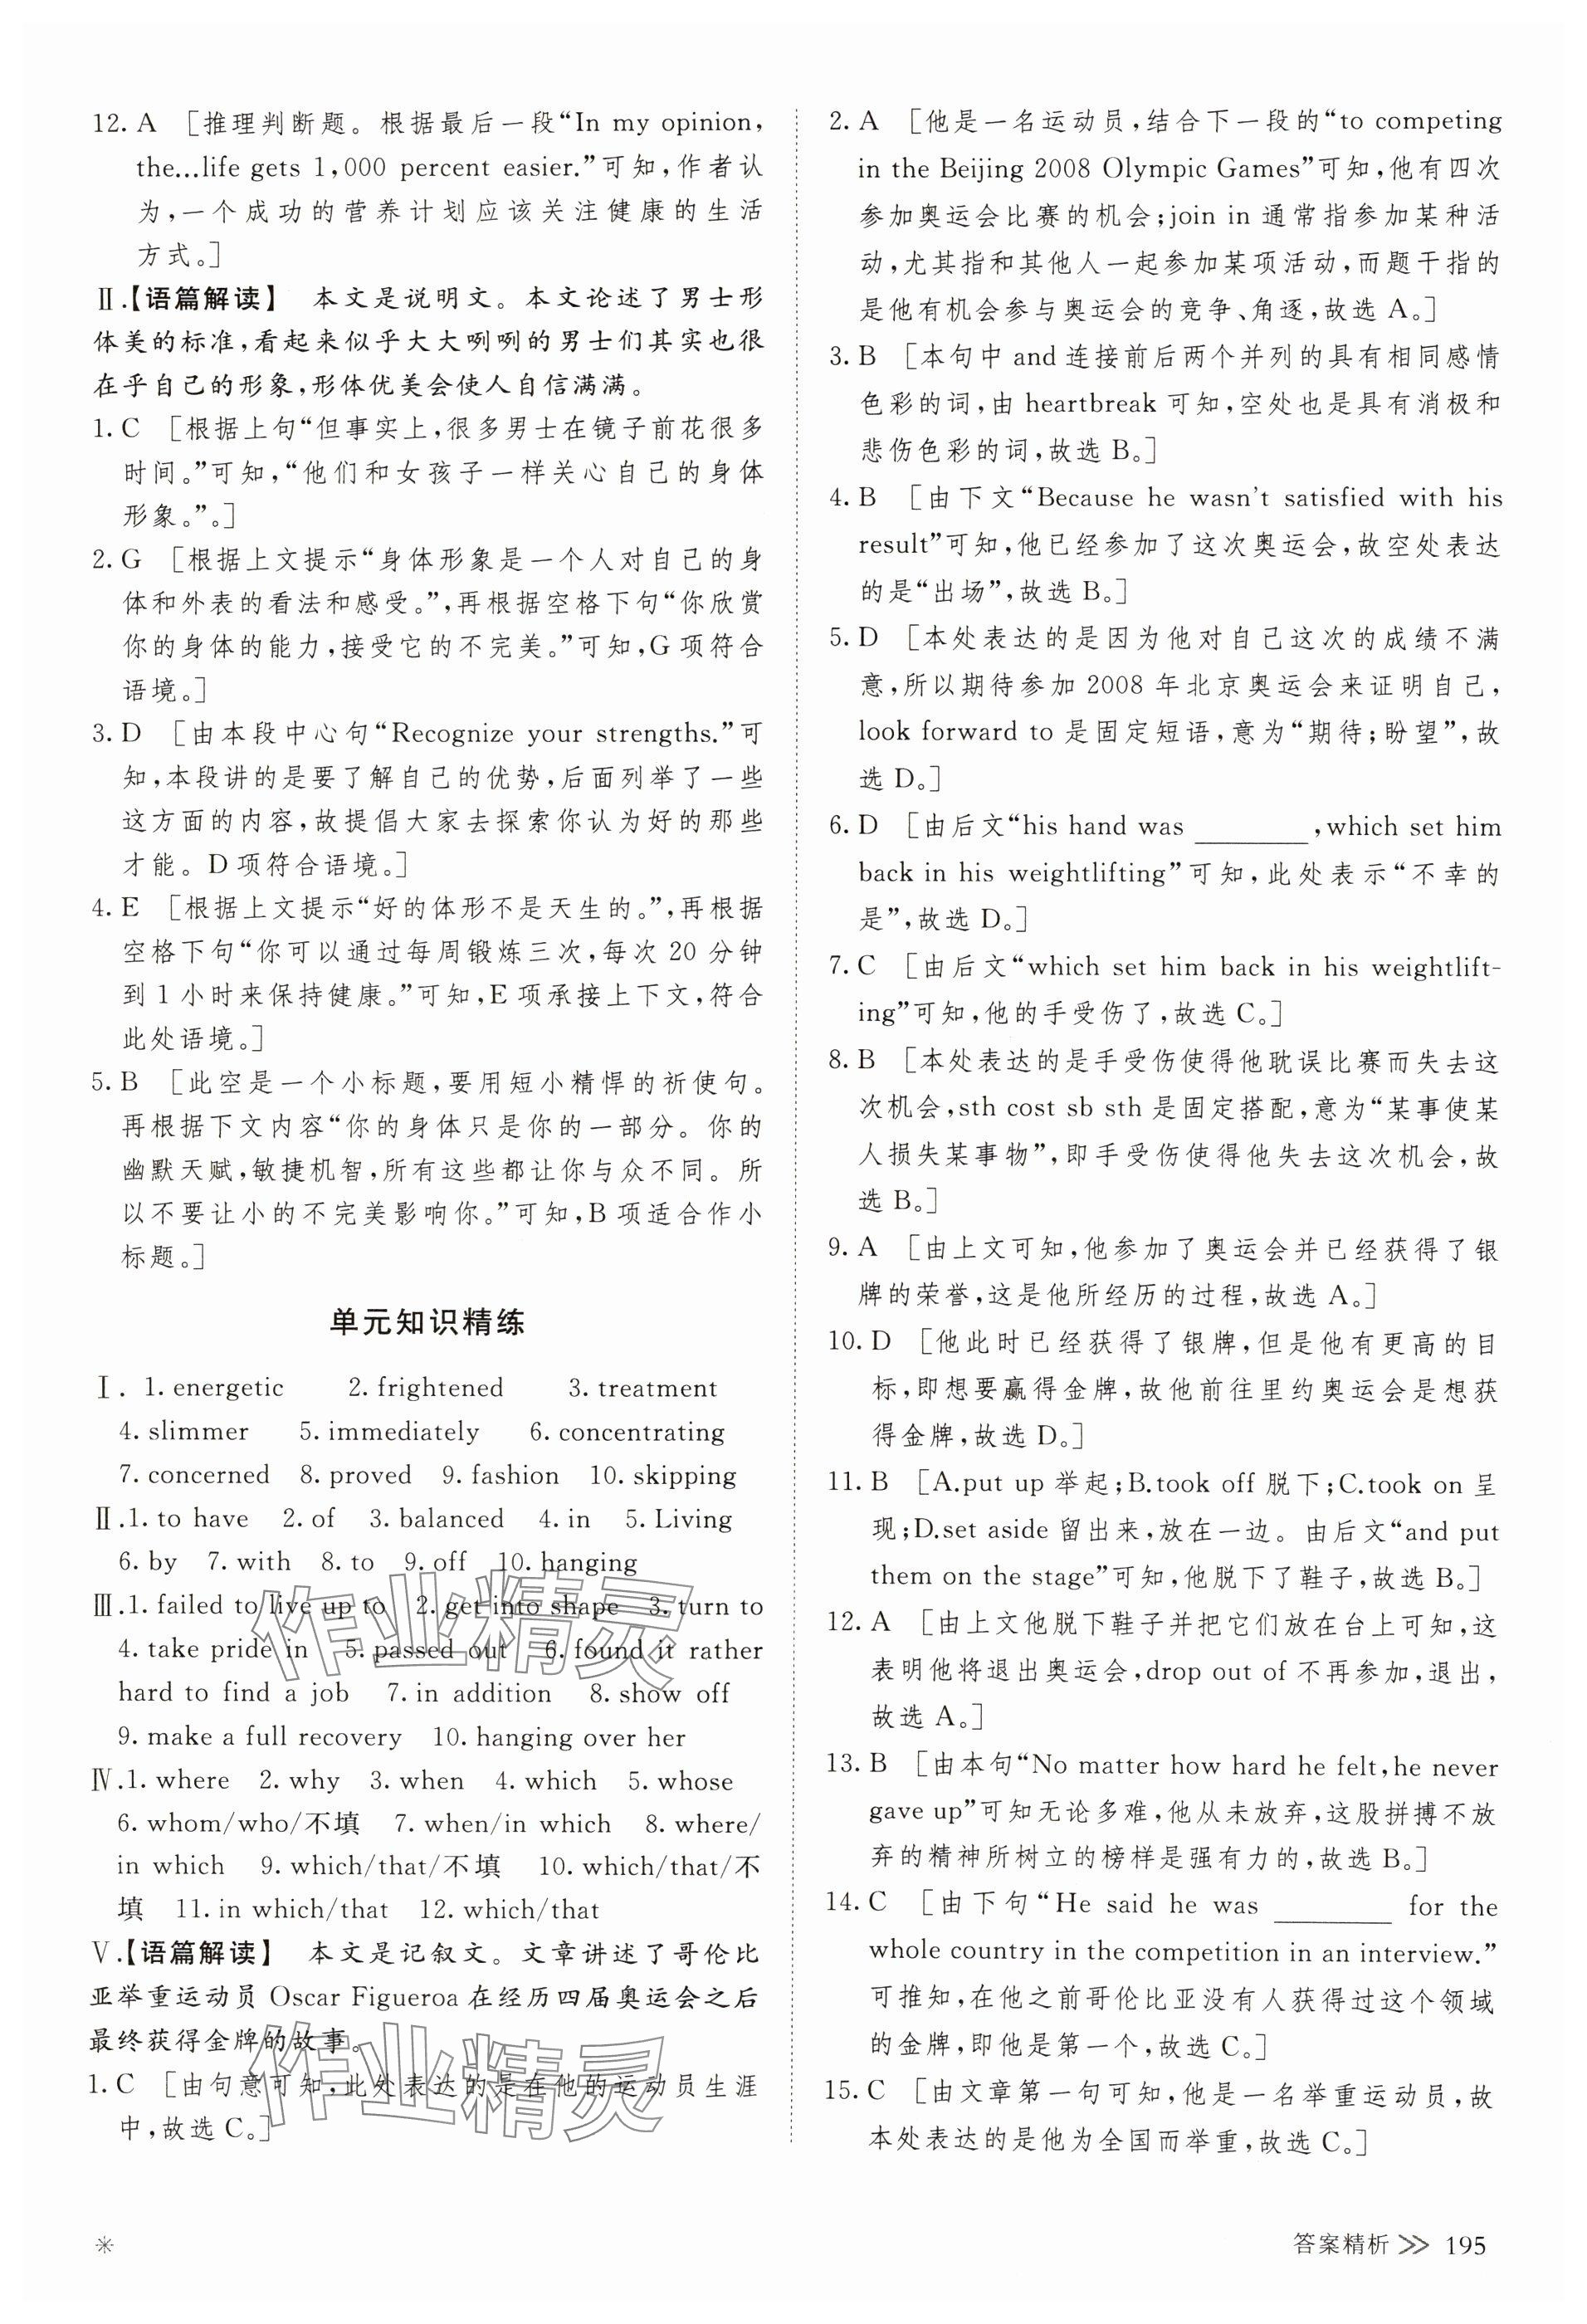 12. A ［推理判断题。根据最后一段“In my opinion,
the...life gets 1,000 percent easier.”可知,作者认
为,一个成功的营养计划应该关注健康的生活
方式。］
Ⅱ.【语篇解读】 本文是说明文。本文论述了男士形
体美的标准,看起来似乎大大咧咧的男士们其实也很
在乎自己的形象,形体优美会使人自信满满。
1. C ［根据上句“但事实上,很多男士在镜子前花很多
时间。”可知,“他们和女孩子一样关心自己的身体
形象。”。］
2. G ［根据上文提示“身体形象是一个人对自己的身
体和外表的看法和感受。”,再根据空格下句“你欣赏
你的身体的能力,接受它的不完美。”可知,G 项符合
语境。］
3. D ［由本段中心句“Recognize your strengths.”可
知,本段讲的是要了解自己的优势,后面列举了一些
这方面的内容,故提倡大家去探索你认为好的那些
才能。D 项符合语境。］
4. E ［根据上文提示“好的体形不是天生的。”,再根据
空格下句“你可以通过每周锻炼三次,每次 20 分钟
到 1 小时来保持健康。”可知,E 项承接上下文,符合
此处语境。］
5. B ［此空是一个小标题,要用短小精悍的祈使句。
再根据下文内容“你的身体只是你的一部分。你的
幽默天赋,敏捷机智,所有这些都让你与众不同。所
以不要让小的不完美影响你。”可知,B 项适合作小
标题。］
单元知识精练
Ⅰ. 1. energetic 2. frightened 3. treatment
4. slimmer 5. immediately 6. concentrating
7. concerned 8. proved 9. fashion 10. skipping
Ⅱ. 1. to have 2. of 3. balanced 4. in 5. Living
6. by 7. with 8. to 9. off 10. hanging
Ⅲ. 1. failed to live up to 2. get into shape 3. turn to
4. take pride in 5. passed out 6. found it rather
hard to find a job 7. in addition 8. show off
9. make a full recovery 10. hanging over her
Ⅳ. 1. where 2. why 3. when 4. which 5. whose
6. whom/who/不填 7. when/in which 8. where/
in which 9. which/that/不填 10. which/that/不
填 11. in which/that 12. which/that
Ⅴ.【语篇解读】 本文是记叙文。文章讲述了哥伦比
亚举重运动员 Oscar Figueroa 在经历四届奥运会之后
最终获得金牌的故事。
1. C ［由句意可知,此处表达的是在他的运动员生涯
中,故选 C。］
2. A ［他是一名运动员,结合下一段的“to competing
in the Beijing 2008 Olympic Games”可知,他有四次
参加奥运会比赛的机会;join in 通常指参加某种活
动,尤其指和其他人一起参加某项活动,而题干指的
是他有机会参与奥运会的竞争、角逐,故选 A。］
3. B ［本句中 and 连接前后两个并列的具有相同感情
色彩的词,由 heartbreak 可知,空处也是具有消极和
悲伤色彩的词,故选 B。］
4. B ［由下文“Because he wasn't satisfied with his
result”可知,他已经参加了这次奥运会,故空处表达
的是“出场”,故选 B。］
5. D ［本处表达的是因为他对自己这次的成绩不满
意,所以期待参加 2008 年北京奥运会来证明自己,
look forward to 是固定短语,意为“期待;盼望”,故
选 D。］
6. D ［由后文“his hand was ________,which set him
back in his weightlifting”可知,此处表示“不幸的
是”,故选 D。］
7. C ［由后文“which set him back in his weightlift-
ing”可知,他的手受伤了,故选 C。］
8. B ［本处表达的是手受伤使得他耽误比赛而失去这
次机会,sth cost sb sth 是固定搭配,意为“某事使某
人损失某事物”,即手受伤使得他失去这次机会,故
选 B。］
9. A ［由上文可知,他参加了奥运会并已经获得了银
牌的荣誉,这是他所经历的过程,故选 A。］
10. D ［他此时已经获得了银牌,但是他有更高的目
标,即想要赢得金牌,故他前往里约奥运会是想获
得金牌,故选 D。］
11. B ［A.put up 举起;B.took off 脱下;C.took on 呈
现;D.set aside 留出来,放在一边。由后文“and put
them on the stage”可知,他脱下了鞋子,故选 B。］
12. A ［由上文他脱下鞋子并把它们放在台上可知,这
表明他将退出奥运会,drop out of 不再参加,退出,
故选 A。］
13. B ［由本句“No matter how hard he felt,he never
gave up”可知无论多难,他从未放弃,这股拼搏不放
弃的精神所树立的榜样是强有力的,故选 B。］
14. C ［由下句“He said he was ________ for the
whole country in the competition in an interview.”
可推知,在他之前哥伦比亚没有人获得过这个领域
的金牌,即他是第一个,故选 C。］
15. C ［由文章第一句可知,他是一名举重运动员,故
本处表达的是他为全国而举重,故选 C。］
作业精灵
作业精灵
答案精析 >> 195